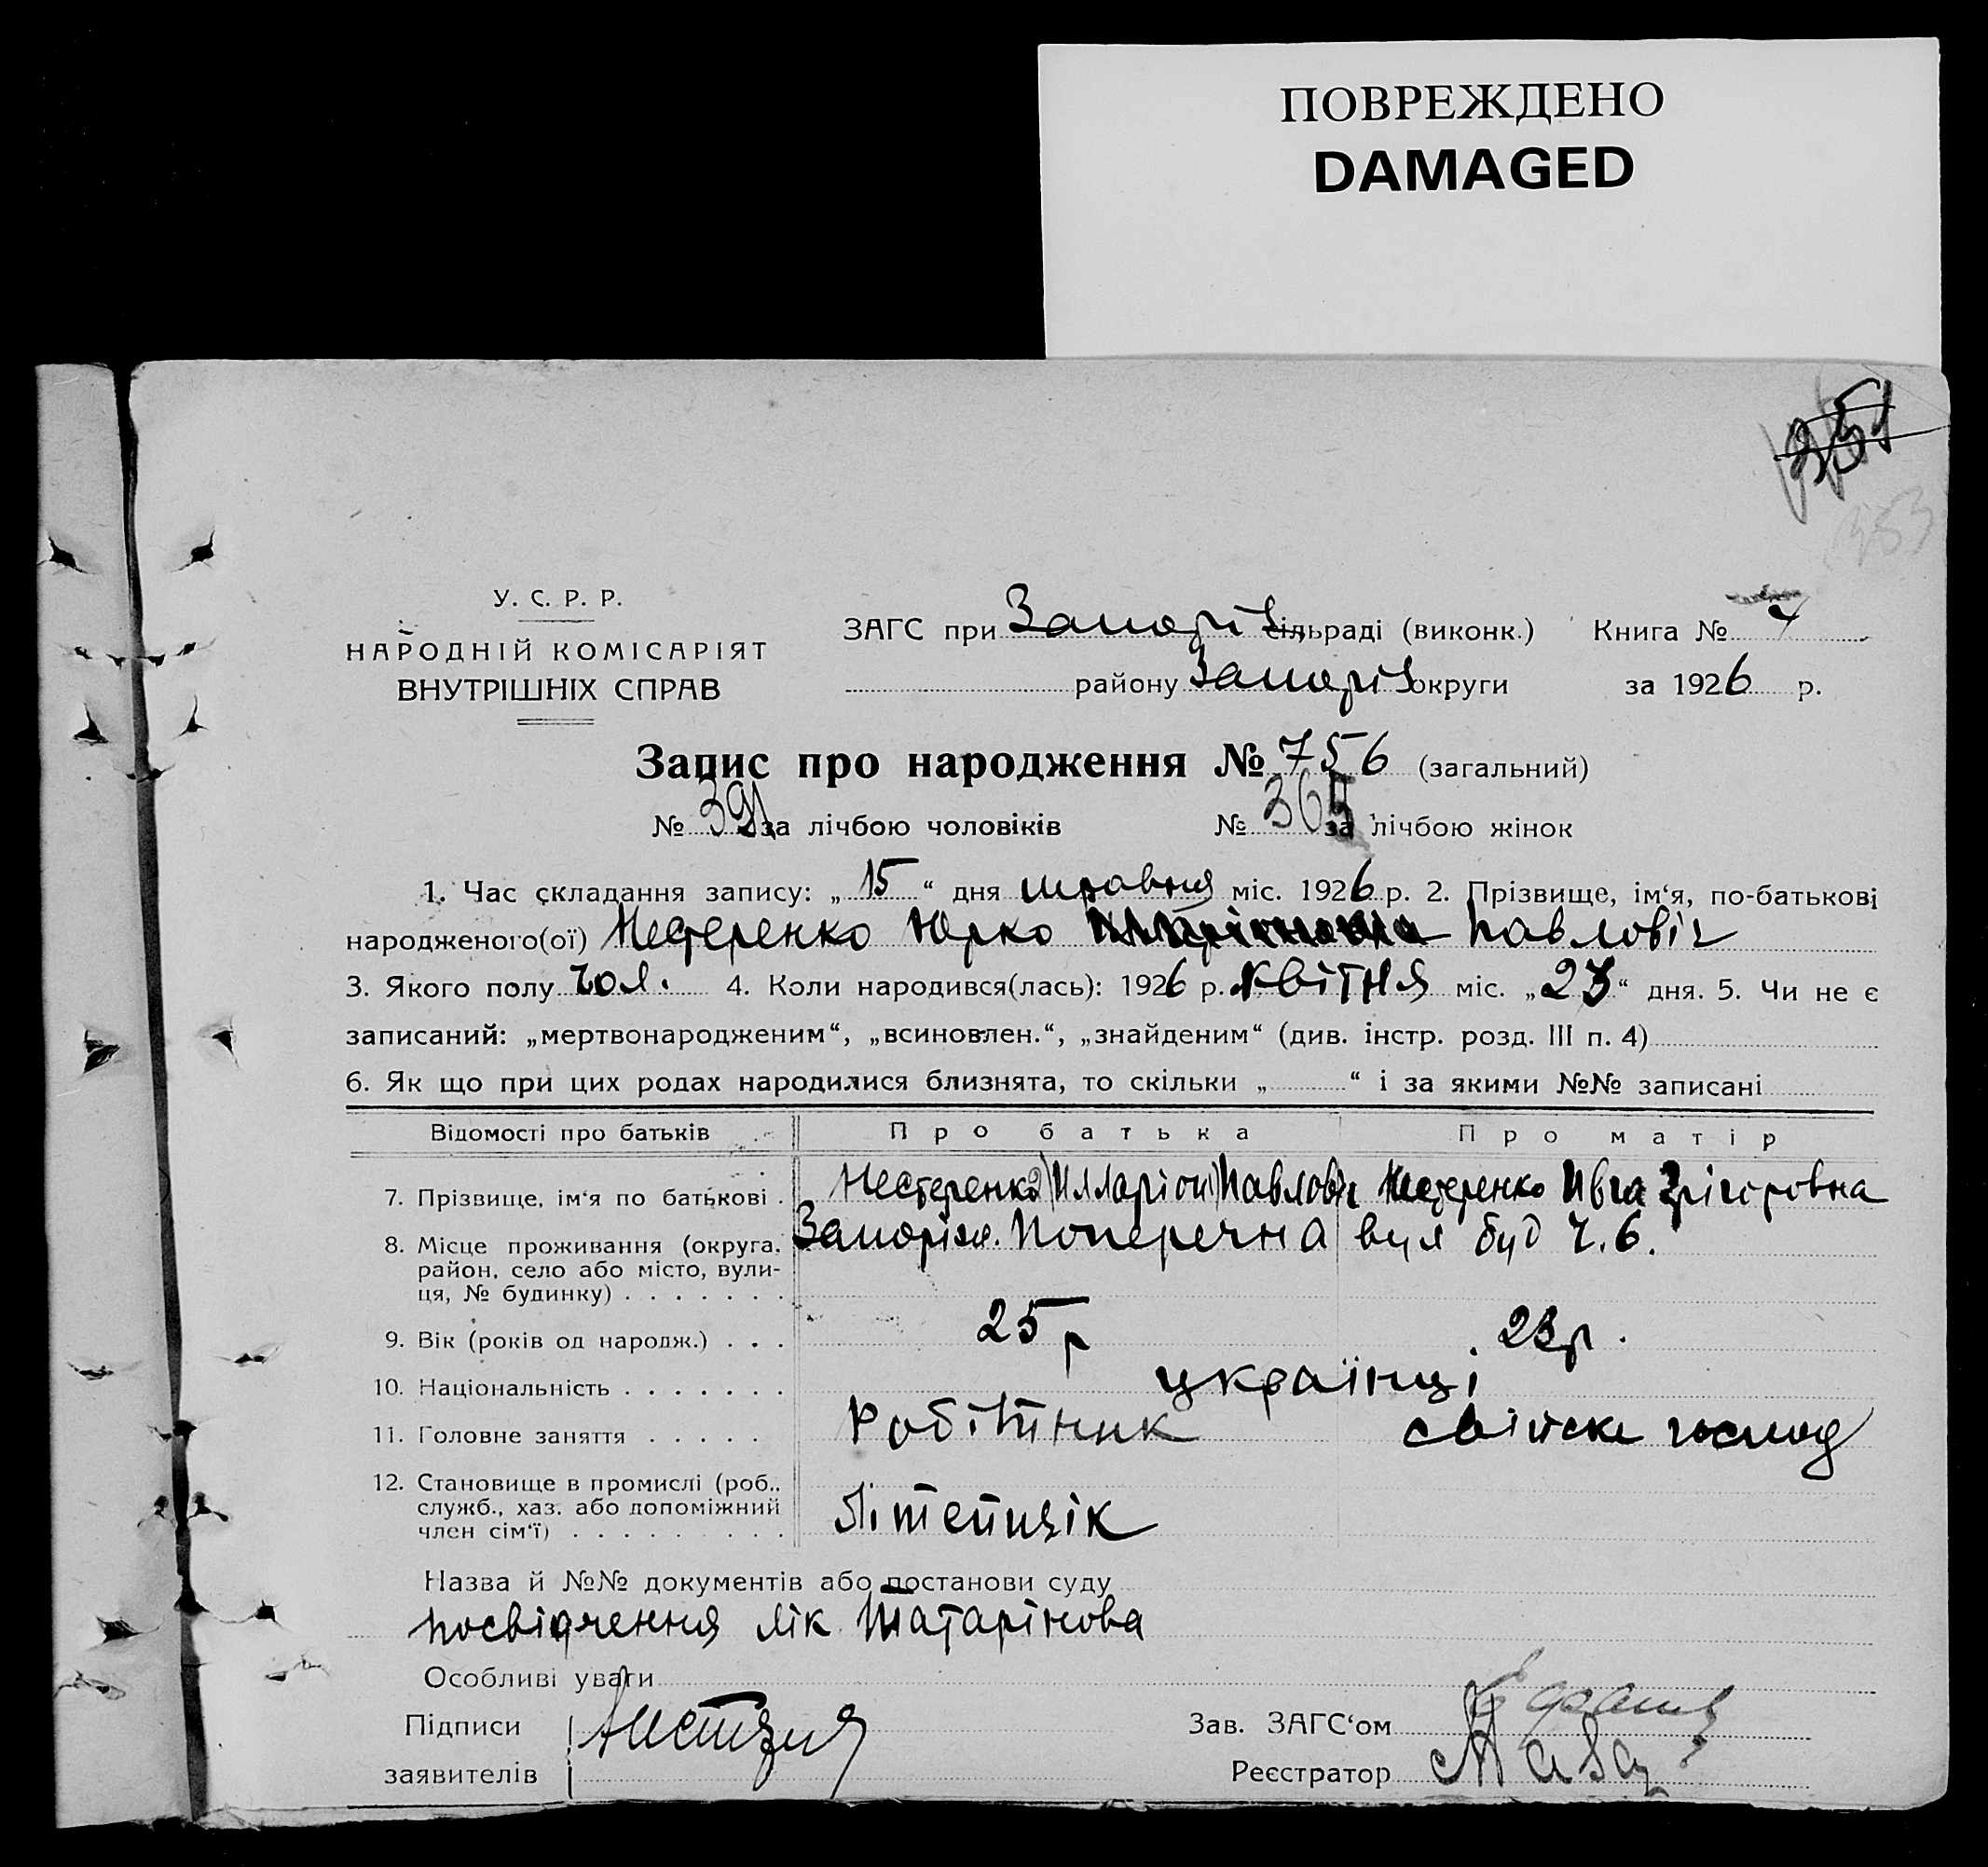 ПОВРЕЖДЕНО
DAMAGED
351
353
У. С. Р. Р.
НАРОДНІЙ КОМІСАРІЯТ
ВНУТРІШНІХ СПРАВ
ЗАГС при Запоріз сільраді (виконк.) Книга № 7
району Запоріз округи за 1926 р.
Запис про народження № 756 (загальний)
№ 391 за лічбою чоловіків № 365 за лічбою жінок
1. Час складання запису: „15“ дня травня міс. 1926 р. 2. Прізвище, ім‘я, по-батькові
народженого(ої) Нестеренко Юрко Павловіч
3. Якого полу чол. 4. Коли народився(лась): 1926 р. квітня міс. „23“ дня. 5. Чи не є
записаний: „мертвонародженим“, „всиновлен.“, „знайденим“ (див. інстр. розд. III п. 4)
6. Як що при цих родах народилися близнята, то скільки „ “ і за якими №№ записані
Відомості про батьків Про батька Про матір
7. Прізвище, ім‘я по батькові . Нестеренко (Илларіон) Павловіч Нестеренко Ивга Грігоровна
8. Місце проживання (округа, Запоріж. Поперечна вул буд ч. 6.
район, село або місто, вули-
ця, № будинку) . . . . . . .
9. Вік (років од народж.) . . . 25 р 23 р.
10. Національність . . . . . . . українці
11. Головне заняття . . . . . Робітник свійске господ
12. Становище в промислі (роб.,
служб., хаз. або допоміжний
член сім‘ї) . . . . . . . . .
Назва й №№ документів або постанови суду
посвідчення лік Татарінова
Особливі уваги
Підписи Зав. ЗАГС‘ом
заявителів Реєстратор